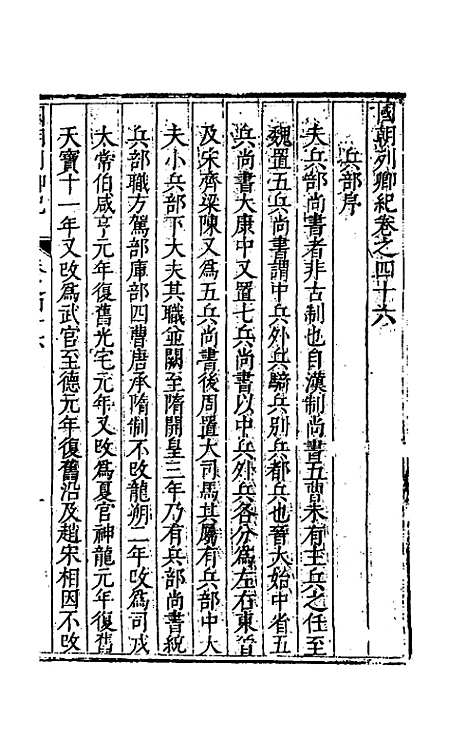 國朝列卿紀卷之四十六
兵部序
夫兵部尚書者非古制也自漢制尚書五曹未有主兵之任至
魏置五兵尚書謂中兵外兵騎兵別兵都兵也晉太始中省五
兵尚書太康中又置七兵尚書以中兵外兵各分為左右東晉
及宋齊梁陳又為五兵尚書後周置大司馬其屬有兵部中大
夫小兵部下大夫其職並闕至隋開皇三年乃有兵部尚書統
兵部職方駕部庫部四曹唐承隋制不改龍朔二年改為司戎
太常伯咸亨元年復舊光宅元年又改為夏官神龍元年復舊
天寶十一年又改為武官至德元年復舊沿及趙宋相因不改